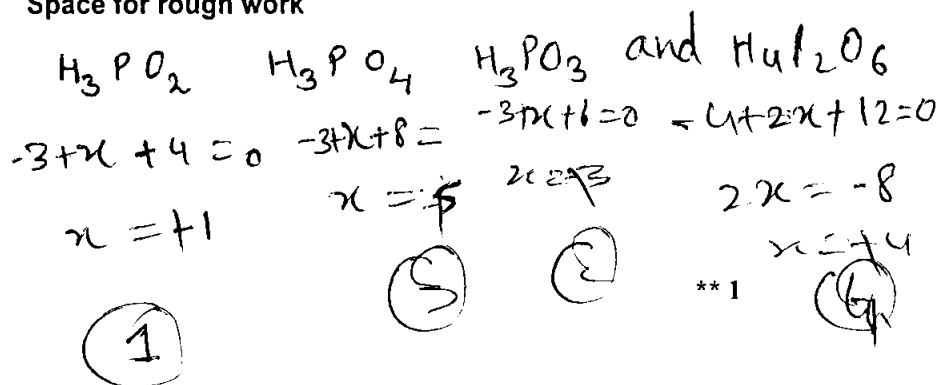 Space for rough work
H₃PO₂ H₃PO₄ H₃PO₃ and H4P₂O₆
-3+x+4=0 -3+x+8= -3+x+6=0 -4+2x+12=0
x=+1 x=5 x=3 2x=-8
x=+4
1 5 ** 1 4